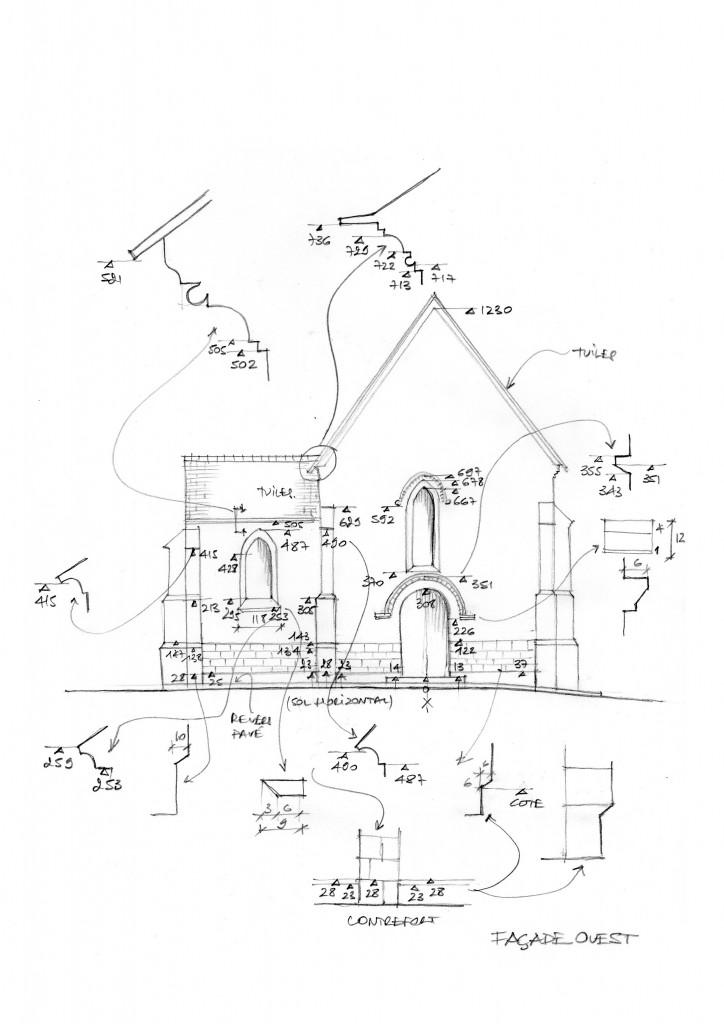 736
729
722
713
717
521
505
502
1230
TUILES
697
678
667
592
355
351
343
TUILES
629
505
487
490
429
415
4
12
1
6
415
370
351
308
213
295
118
253
305
226
122
147
138
143
134
28
25
23
28
23
14
13
37
0
(SOL HORIZONTAL)
REVERS
PAVÉ
X
259
253
10
3
6
9
490
487
6
6
COTE
28
23
28
23
28
CONTREFORT
FAÇADE OUEST